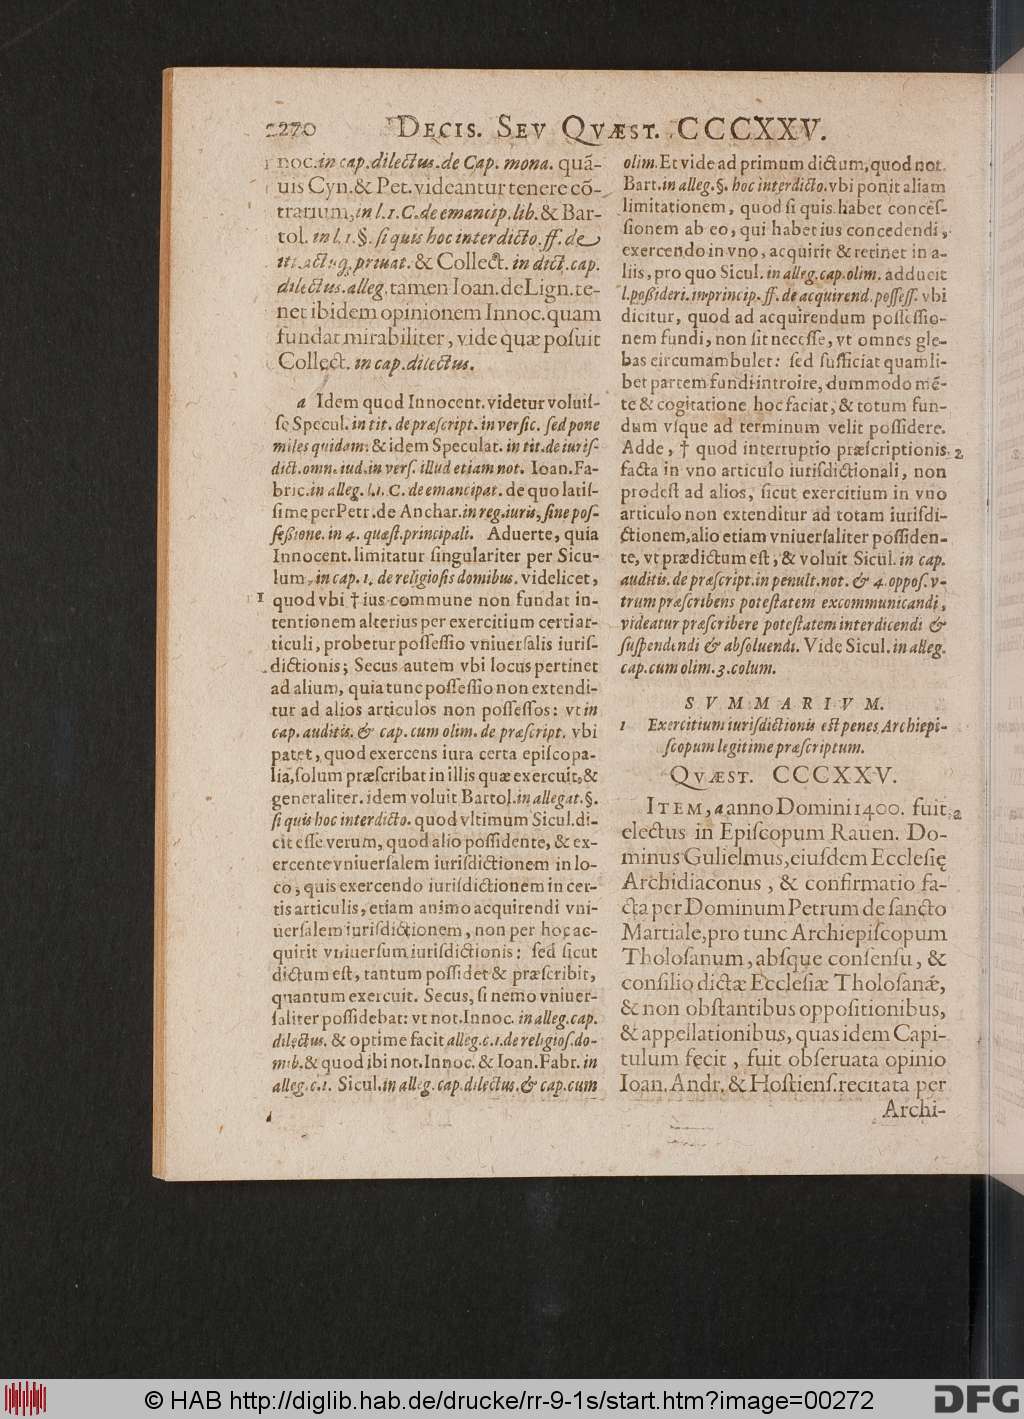 270 DECIS. SEV QVÆST. CCCXXV.
noc. in cap. dilectus. de Cap. mona. quã-
uis Cyn. & Pet. videantur tenere cõ-
trarium, in l. 1. C. de emancip. lib. & Bar-
tol. in l. 1. §. si quis hoc interdicto. ff. de
iti. actuq; priuat. & Collect. in dict. cap.
dilectus. alleg. tamen Ioan. de Lign. te-
net ibidem opinionem Innoc. quam
fundat mirabiliter, vide quæ posuit
Collect. in cap. dilectus.
a Idem quod Innocent. videtur voluis-
se Specul. in tit. de præscript. in versic. sed pone
miles quidam: & idem Speculat. in tit. de iuris-
dict. omn. iud. in vers. illud etiam not. Ioan. Fa-
bric. in alleg. l. 1. C. de emancipat. de quo latis-
sime per Petr. de Anchar. in reg. iuris, sine pos-
seßione. in 4. quæst. principali. Aduerte, quia
Innocent. limitatur singulariter per Sicu-
lum, in cap. 1. de religiosis domibus. videlicet,
1 quod vbi † ius commune non fundat in-
tentionem alterius per exercitium certi ar-
ticuli, probetur possessio vniuersalis iuris-
dictionis; Secus autem vbi locus pertinet
ad alium, quia tunc possessio non extendi-
tur ad alios articulos non possessos: vt in
cap. auditis. & cap. cum olim. de præscript. vbi
patet, quod exercens iura certa episcopa-
lia, solum præscribat in illis quæ exercuit, &
generaliter. idem voluit Bartol. in allegat. §.
si quis hoc interdicto. quod vltimum Sicul. di-
cit esse verum, quod alio possidente, & ex-
ercente vniuersalem iurisdictionem in lo-
co, quis exercendo iurisdictionem in cer-
tis articulis, etiam animo acquirendi vni-
uersalem iurisdictionem, non per hoc ac-
quirit vniuersum iurisdictionis: sed sicut
dictum est, tantum possidet & præscribit,
quantum exercuit. Secus, si nemo vniuer-
saliter possidebat: vt not. Innoc. in alleg. cap.
dilectus. & optime facit alleg. c. 1. de religios. do-
mib. & quod ibi not. Innoc. & Ioan. Fabr. in
alleg. c. 1. Sicul. in alleg. cap. dilectus. & cap. cum
olim. Et vide ad primum dictum, quod not.
Bart. in alleg. §. hoc interdicto. vbi ponit aliam
limitationem, quod si quis habet conces-
sionem ab eo, qui habet ius concedendi,
exercendo in vno, acquirit & retinet in a-
liis, pro quo Sicul. in alleg. cap. olim. adducit
l. poßideri. in princip. ff. de acquirend. possess. vbi
dicitur, quod ad acquirendum possessio-
nem fundi, non sit necesse, vt omnes gle-
bas circumambulet: sed sufficiat quamli-
bet partem fundi introire, dummodo mẽ-
te & cogitatione hoc faciat, & totum fun-
dum vsque ad terminum velit possidere.
Adde, † quod interruptio præscriptionis 2
facta in vno articulo iurisdictionali, non
prodest ad alios, sicut exercitium in vno
articulo non extenditur ad totam iurisdi-
ctionem, alio etiam vniuersaliter possiden-
te, vt prædictum est, & voluit Sicul. in cap.
auditis. de præscript. in penult. not. & 4. oppos. v-
trum præscribens potestatem excommunicandi,
videatur præscribere potestatem interdicendi &
suspendendi & absoluendi. Vide Sicul. in alleg.
cap. cum olim. 3. colum.
SVMMARIVM.
1 Exercitium iurisdictionis est penes Archiepi-
scopum legitime præscriptum.
QVÆST. CCCXXV.
ITEM, a anno Domini 1400. fuit 2
electus in Episcopum Rauen. Do-
minus Gulielmus, eiusdem Ecclesię
Archidiaconus, & confirmatio fa-
cta per Dominum Petrum de sancto
Martiale, pro tunc Archiepiscopum
Tholosanum, absque consensu, &
consilio dictæ Ecclesiæ Tholosanæ,
& non obstantibus oppositionibus,
& appellationibus, quas idem Capi-
tulum fecit, fuit obseruata opinio
Ioan. Andr. & Hostiens. recitata per
Archi-
© HAB http://diglib.hab.de/drucke/rr-9-1s/start.htm?image=00272
DFG